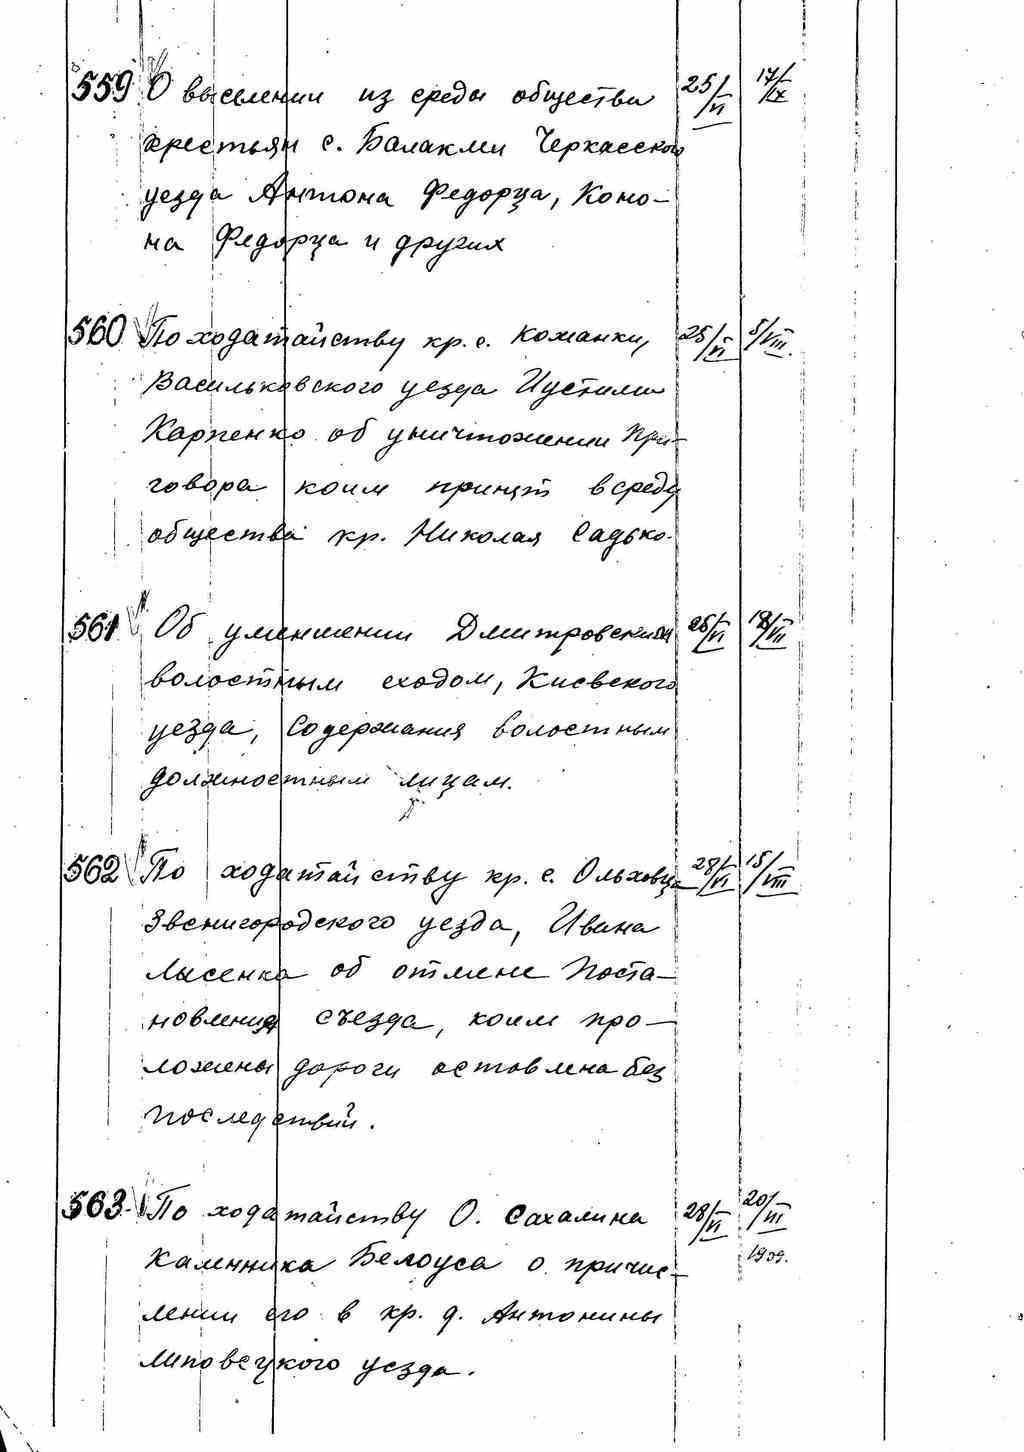 559 О выселении из среды общества 25/VI 17/IX
крестьян с. Балаклеи Черкасского
уезда Антона Федорца, Коно-
на Федорца и других
560 По ходатайству кр. с. Кожанки, 25/VI 5/VIII.
Васильковского уезда Иустина
Карпенко об уничтожении при-
говора коим принят в среду
общества кр. Николая Садько.
561 Об уменьшении Дмитровским 26/VI 18/VII
волостным сходом, Киевского
уезда, содержания волостным
должностным лицам.
562 По ходатайству кр. с. Ольховца 28/VI 15/VIII
Звенигородского уезда, Ивана
Лысенка об отмене поста-
новления съезда, коим про-
ложены дороги оставлена без
последствий.
563 По ходатайству О. Сахалина 28/VI 20/III
Каленника Белоуса о причис- 1909.
лении его в кр. д. Антонины
Липовецкого уезда.